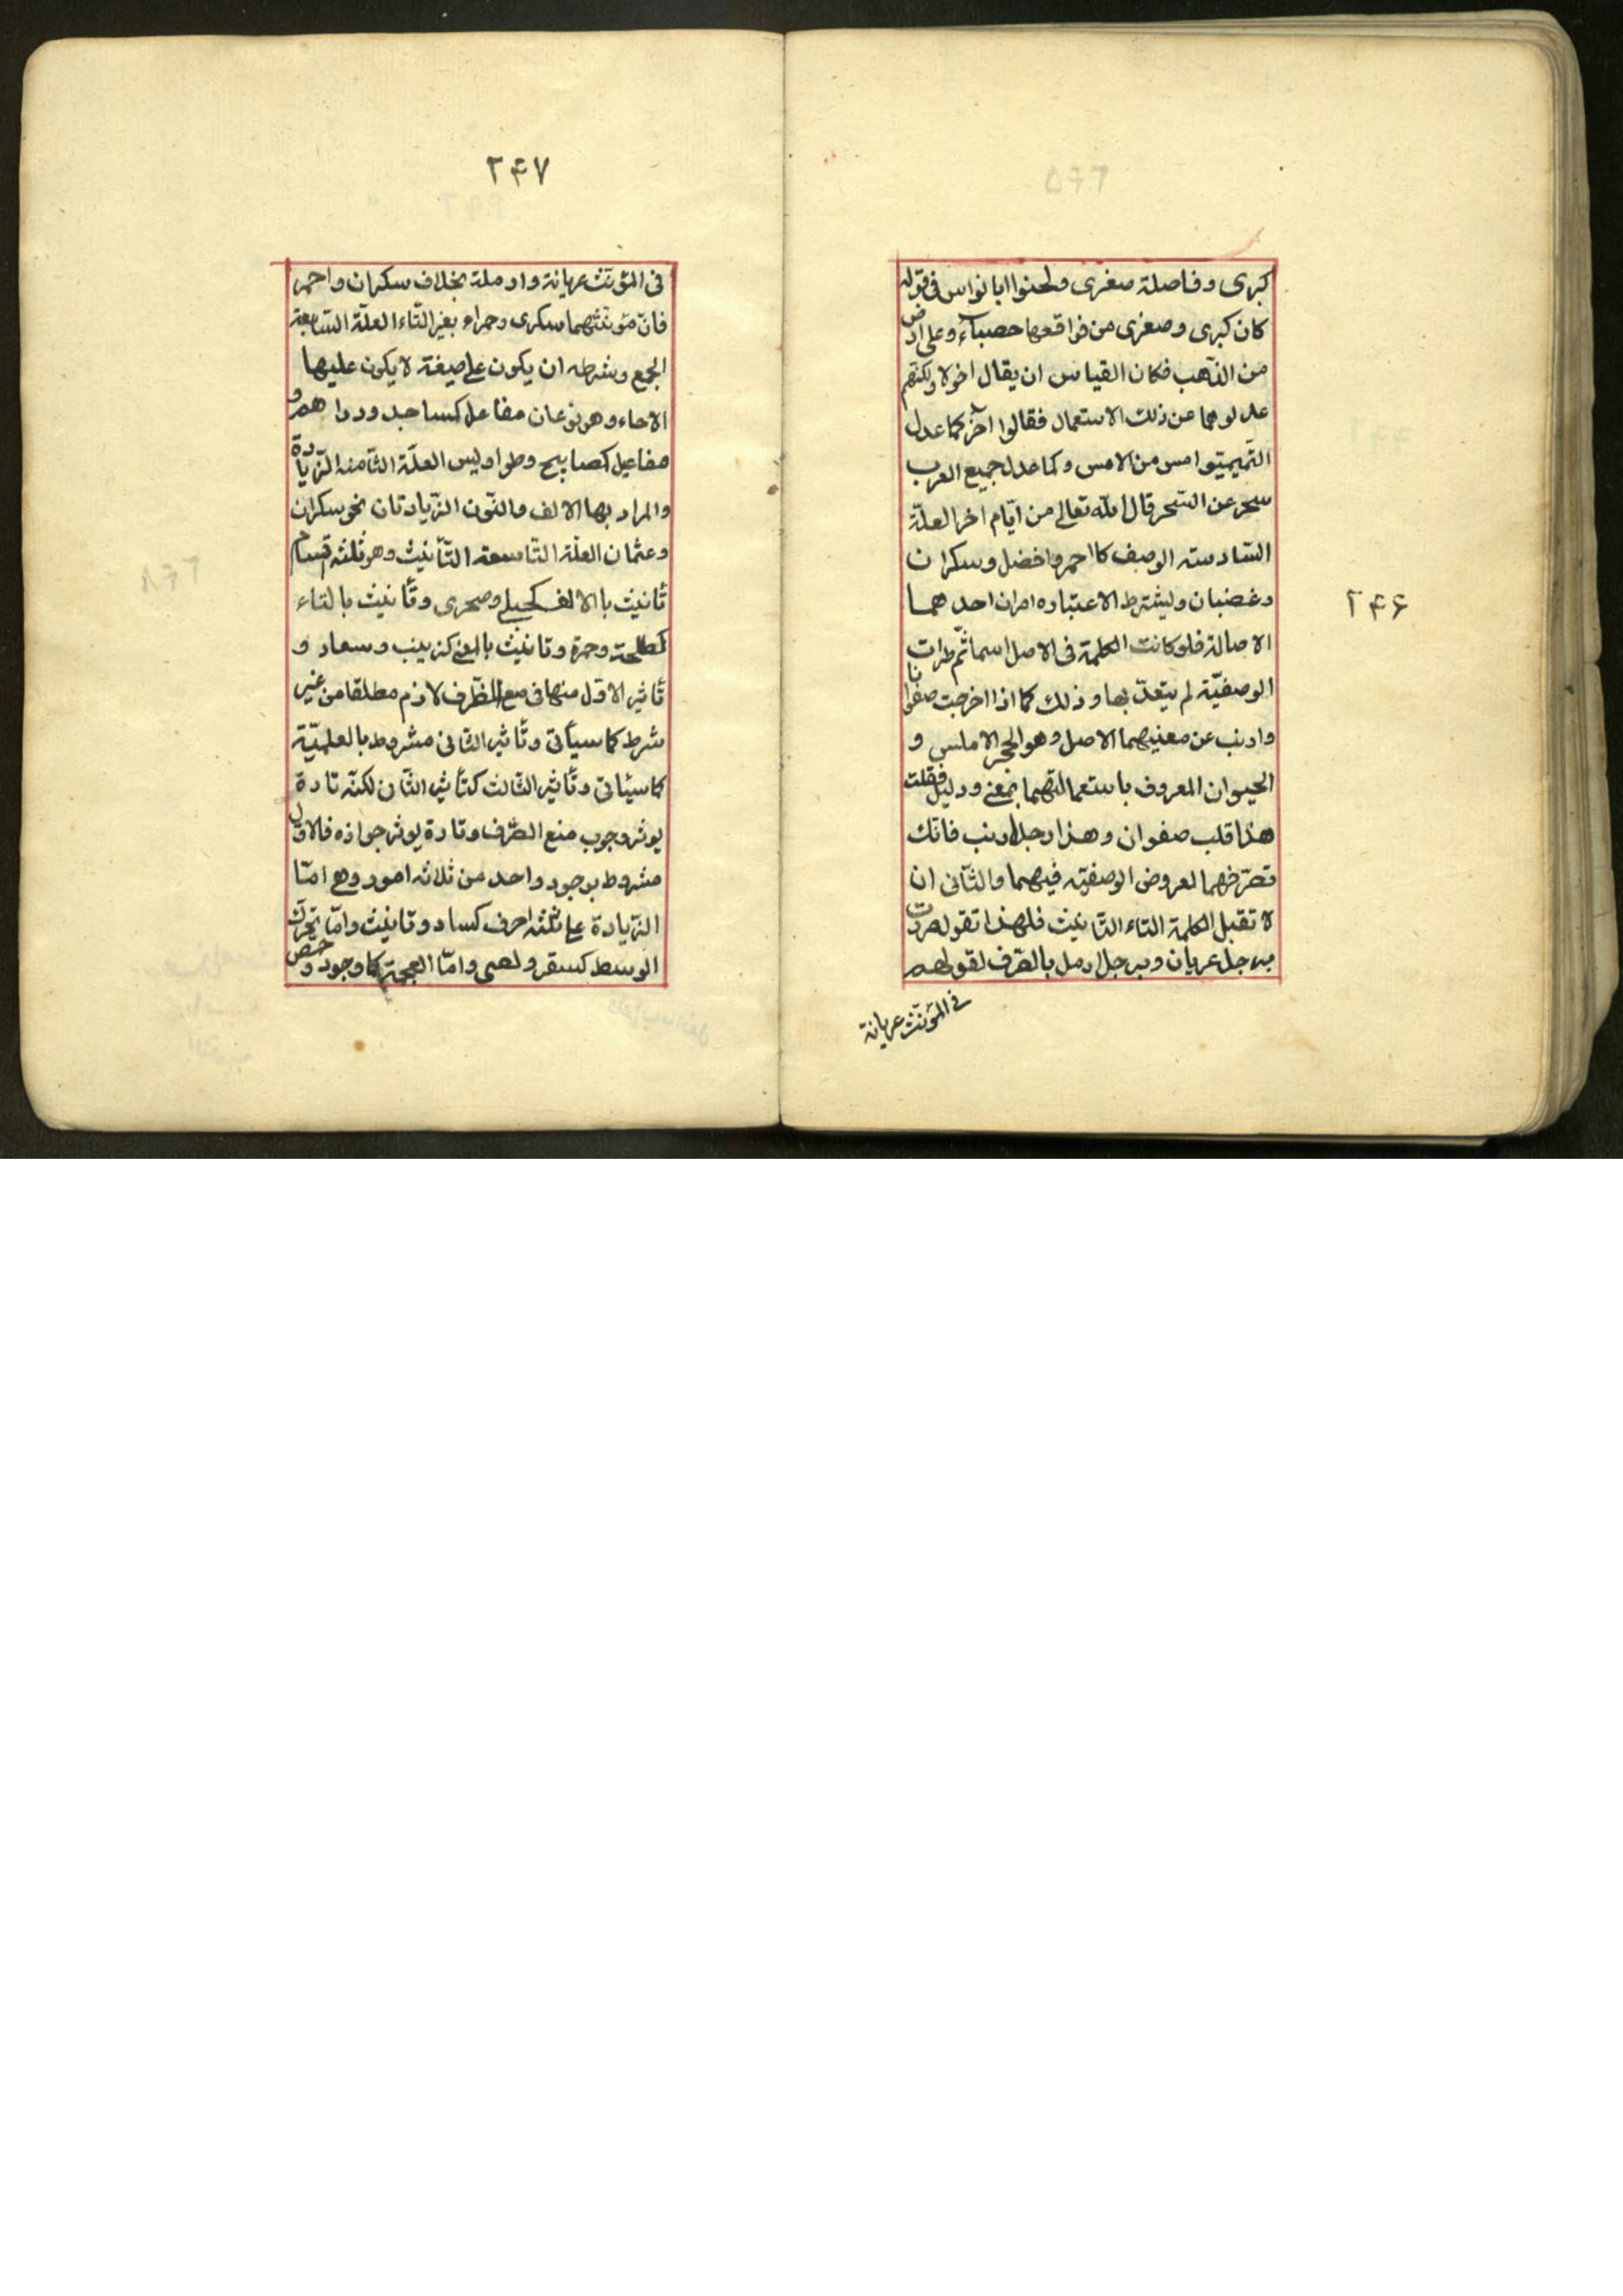 ۲۴۶
كبرى وفاصلة صغرى ولحنوا ابا نواس فى قوله
كان كبرى وصغرى من فواقعها حصباء وعلى ارض
من الذهب فكان القياس ان يقال اخر ولكنهم
عدلوهما عن ذلك الاستعمال فقالوا آخر كما عدل
التميميّوا امس من الامس وكما عدل جميع العرب
سحر عن السّحر قال الله تعالى من ايّام اخر العلّة
السّادسته الوصف كا احمر وافضل وسكران
وغضبان وليشترط الاعتباره امران احدهما
الاصالة فلو كانت الكلمة فى الاصل اسما ثمّ طرات
الوصفيّة لم يتعدّ بها وذلك كما اذا اخرجت صفوانا
وارنب عن معنيهما الاصل وهو الحجر الاملس و
الحيوان المعروف باستعمالتهما بمعنى ودليل فقلت
هذا قلب صفوان وهذا رجل ارنب فانك
تصرفهما لعروض الوصفيّه فيهما والثّانى ان
لا تقبل الكلمة التاء التّانيث فلهذا تقول مررت
برجل عريان وبرجل ارمل بالصّرف لقولهم
فى المؤنّث عريانة
۲۴۷
فى المؤنّث عريانة وارملة بخلاف سكران واحمر
فانّ مؤنّثهما سكرى وحمراء بغير التّاء العلّة السّابعة
الجمع وشرطه ان يكون على صيغة لا يكون عليها
الاحاد وهو نوعان مفاعل كمساجد ودراهم و
مفاعيل كمصابيح وطواويس العلّة الثّامنه الزّيادة
والمراد بها الالف والنّون الزّيادتان نحو سكران
وعثمان العلّة التّاسعة التّأنيث وهو ثلثه اقسام
تأنيث باالالف كحبلى وصحرى وتأنيث بالتاء
كطلحة وحمزة وتانيث بالمعنى كزينب وسعاد و
تأثير الاوّل منها فى منع الظّرف لازم مطلقا من غير
شرط كما سيأتى وتأثير الثّانى مشروط بالعلميّة
كما سيئاتى وتأثير الثّالث كتأثير الثّان لكنّه تارة
يوثر وجوب منع الصّرف وتارة يوثر جوازه فالاوّل
مشروط بوجود واحد من ثلاثه امور وهى امّا
الزّيادة على ثلثه احرف كسعاد وتانيث وامّا تحرّك
الوسط كسقر ولظى وامّا العجمة كماوجور وحمص